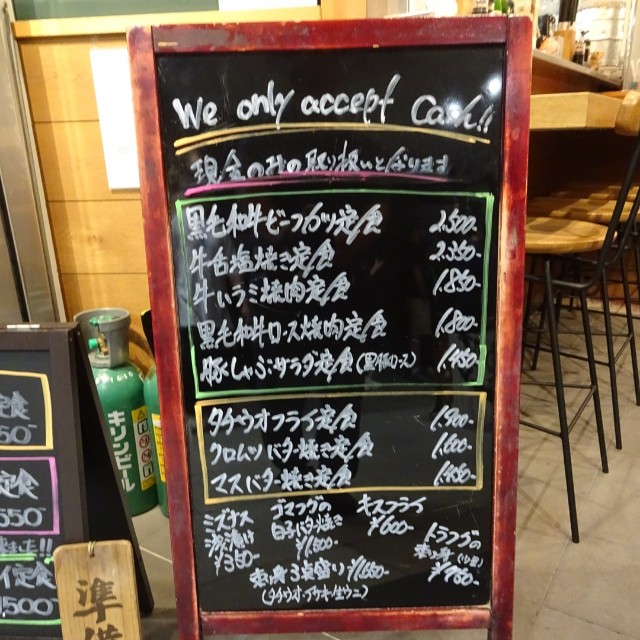 We only accept Cash!!
現金のみの取り扱いとなります
黒毛和牛ビーフカツ定食 2.500-
牛舌塩焼き定食 2.350-
牛ハラミ焼肉定食 1.850-
黒毛和牛ロース焼肉定食 1.800-
豚しゃぶサラダ定食(黒豚ロース) 1.450-
タチウオフライ定食 1.900-
クロムツバター焼き定食 1.600-
マスバター焼き定食
ミズナス
浅漬け
¥350-
ゴマフグの
白子バター焼き
¥1500-
キスフライ
¥600-
トラフグの
お刺身
お刺身3点盛り
(タチウオ・アワキ・生ウニ)
定食
50-
定食
550-
イ定食
1,500-
キリンビール
準備